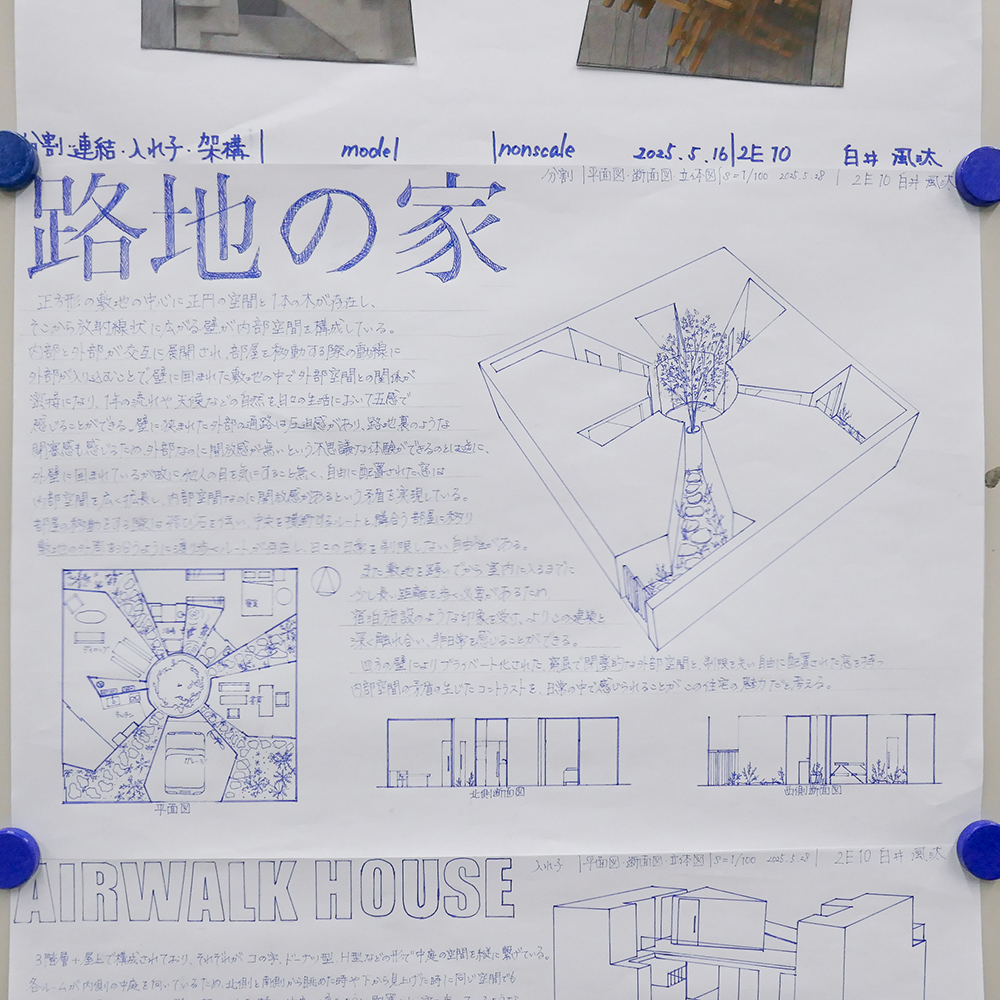 分割・連結・入れ子・架構 | model | nonscale 2025.5.16 | 2E 10 白井 風吹
分割 | 平面図・断面図・立体図 | S=1/100 2025.5.28 | 2E 10 白井 風吹
路地の家
正方形の敷地の中心に正円の空間と1本の木が存在し、
そこから放射線状に広がる壁が内部空間を構成している。
内部と外部が交互に展開され、部屋を移動する際の動線に
外部が入り込むことで、壁に囲まれた敷地の中で外部空間との関係が
密接になり、時の流れや天候などの自然を日々の生活において五感で
感じることができる。壁に挟まれた外部の通路は圧迫感があり、路地裏のような
閉塞感も感じるため、外部なのに開放感が無いという不思議な体験ができるのとは逆に、
外壁に囲まれているが故に他人の目を気にすること無く、自由に配置された窓は
内部空間を広く拡張し、内部空間なのに開放感があるという矛盾を実現している。
部屋の移動をする際は飛び石を使い、中央を横断するルートと隣合う部屋に移り
敷地の外周を沿うように渡り歩くルートが存在し、日々の日常を制限しない自由性がある。
また敷地を跨いでから室内に入るまでに
少し長い距離を歩く必要があるため
宿泊施設のような印象を受け、よりこの建築と
深く触れ合い、非日常を感じることができる。
四方の壁によりプライベート化された窮屈で閉塞的な外部空間と、制限を失い自由に配置された窓を持つ
内部空間の矛盾の生じたコントラストを、日常の中で感じられることがこの住宅の魅力だと考える。
平面図
北側断面図
西側断面図
AIRWALK HOUSE
入れ子 | 平面図・断面図・立体図 | S=1/100 2025.5.28 | 2E 10 白井 風吹
3階層+屋上で構成されており、それぞれがコの字、ドーナツ型、H型などの形で中庭の空間を縦に繋げている。
各ルームが内側の中庭を向いているため、北側と南側から眺めた時や下から見上げた時に同じ空間でも